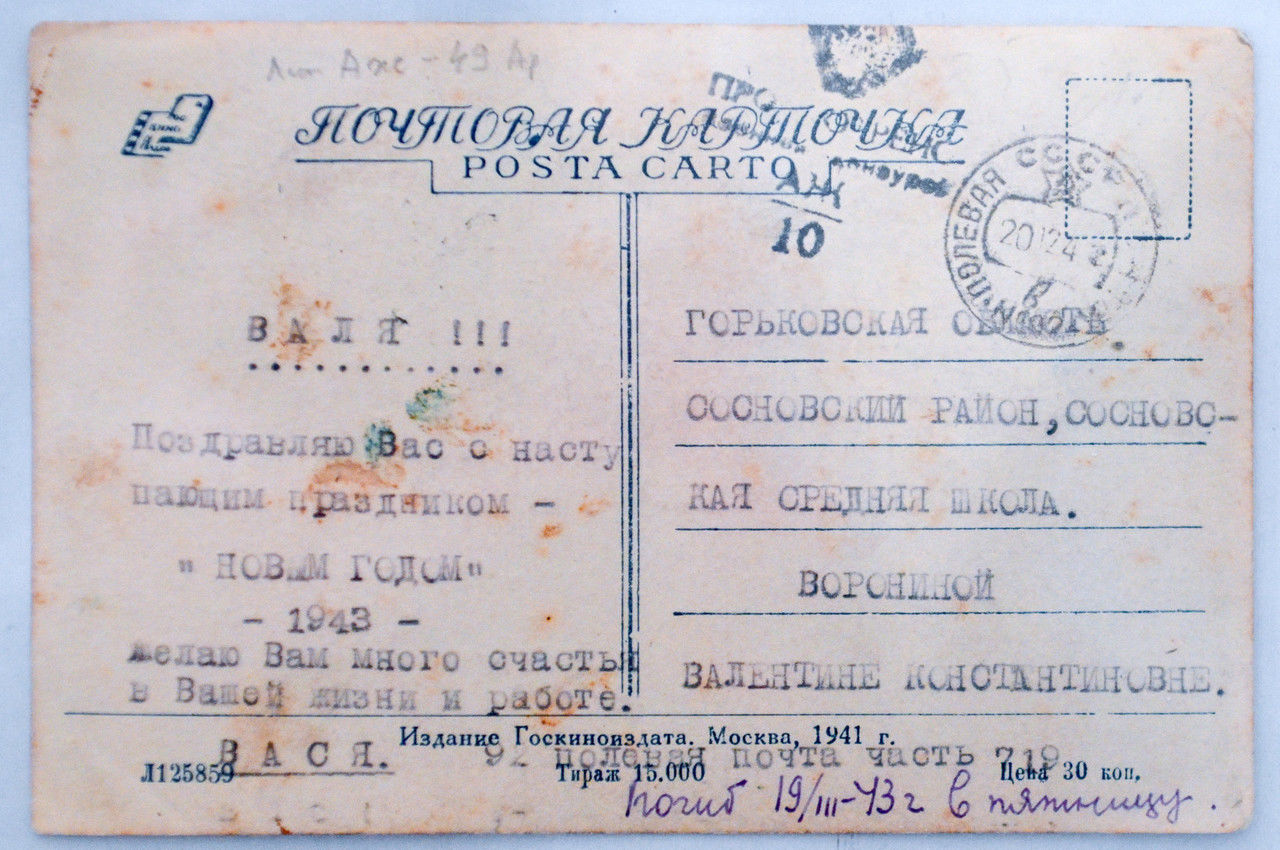 49
ПОЧТОВАЯ КАРТОЧКА
POSTA CARTO
АЖ
10
ПОЛЕВАЯ СССР
20 12 42
ВАЛЯ !!!
Поздравляю Вас с насту
пающим праздником –
" НОВЫМ ГОДОМ"
- 1943 -
желаю Вам много счастья
в Вашей жизни и работе.
ВАСЯ. 92 полевая почта часть 719
ГОРЬКОВСКАЯ ОБЛАСТЬ.
СОСНОВСКИЙ РАЙОН,СОСНОВС-
КАЯ СРЕДНЯЯ ШКОЛА.
ВОРОНИНОЙ
ВАЛЕНТИНЕ КОНСТАНТИНОВНЕ.
Издание Госкиноиздата. Москва, 1941 г.
Л125859 Тираж 15.000 Цена 30 коп.
Погиб 19/III-43 г в пятницу.